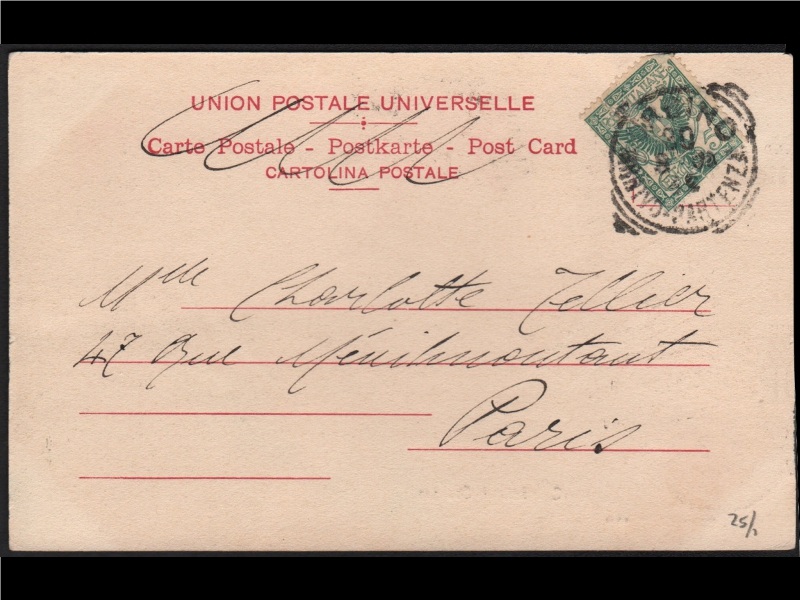 UNION POSTALE UNIVERSELLE
Carte Postale - Postkarte - Post Card
CARTOLINA POSTALE
Mlle Charlotte Tellier
47 Rue Ménilmontant
Paris
25/